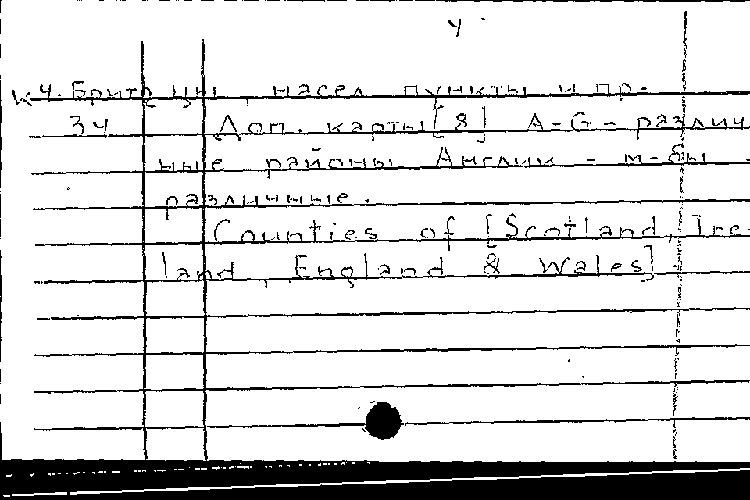 4
К 4. Брит цы, насел пункты и пр.
34 Доп. карты [8] A-G - различ
ные районы Англии - м-бы
различные.
Counties of [Scotland, Ire-
land, England & Wales]